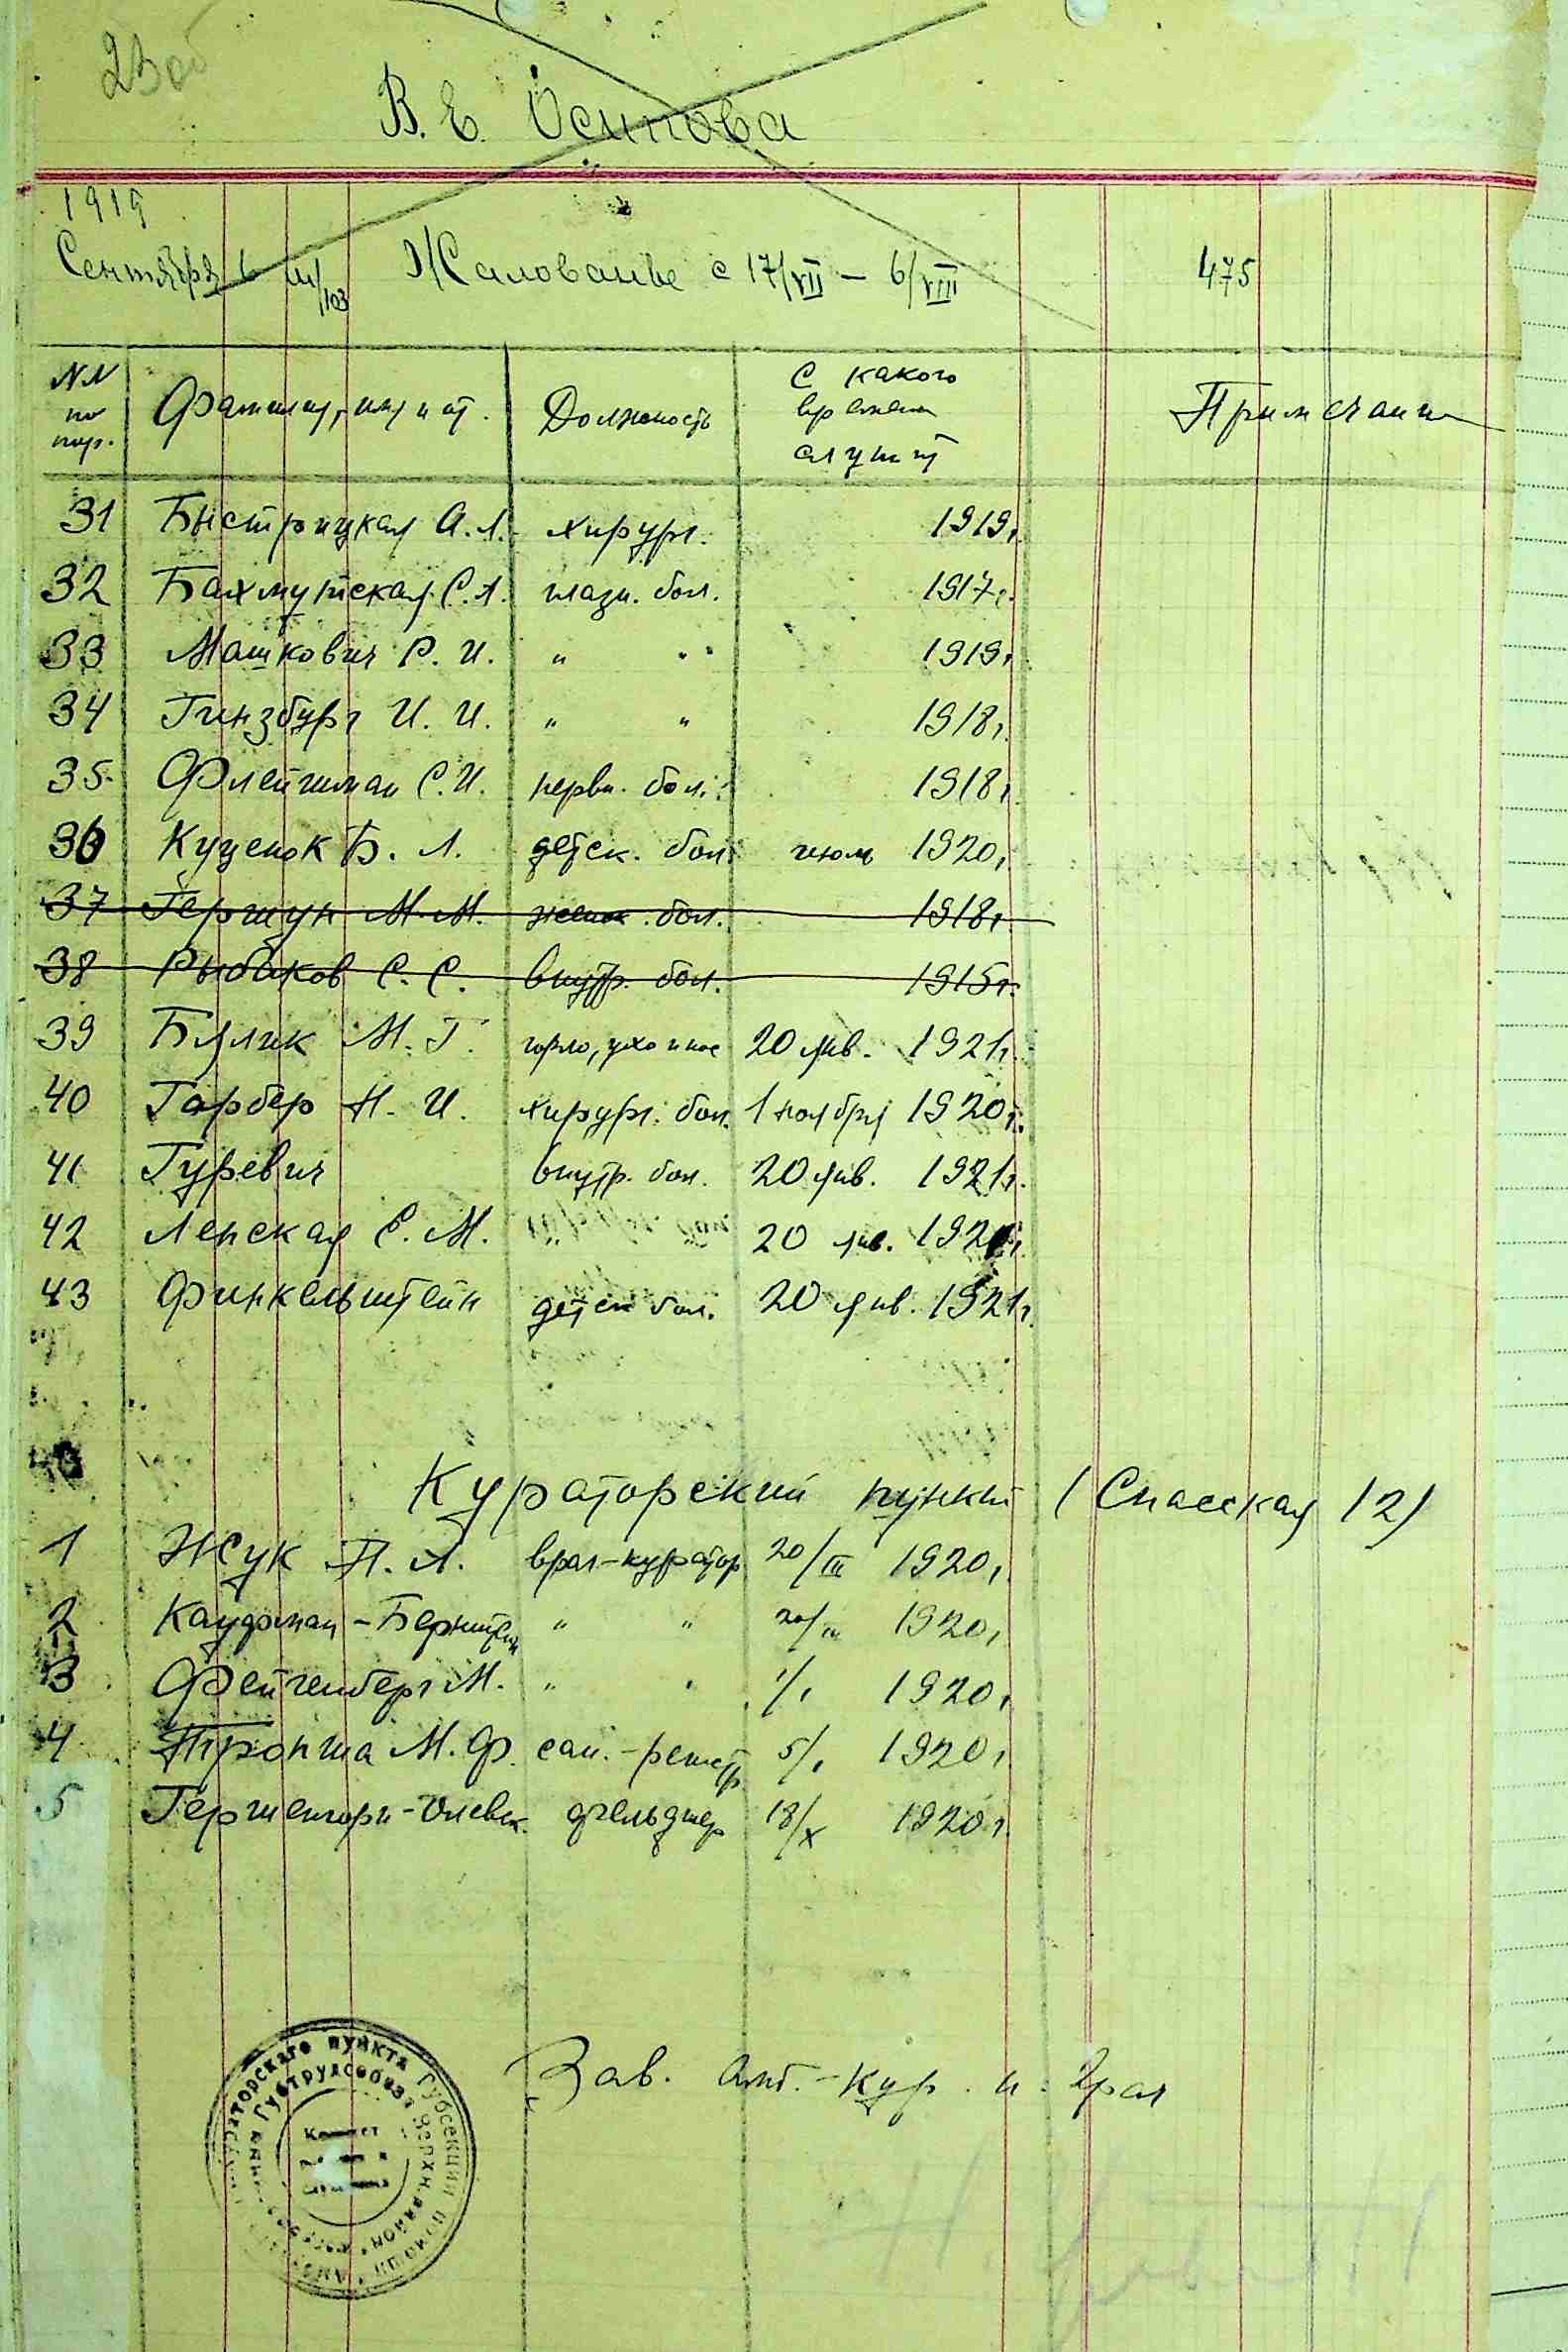 23об
В. Е. Осипова
1919
Сентября 6 III/103 Жалованье с 17/VII – 6/VIII 475
NN по пор. Фамилия, имя и от. Должность С какого времени служит Примечание
31 Быстрицкая А. Л. хирург. 1919г.
32 Бахмутская С. Л. глазн. бол. 1917г.
33 Машкович Р. И. " " 1919г.
34 Гинзбург И. И. " " 1918г.
35 Флейшман С. И. нервн. бол. 1918г.
36 Куценок Б. Л. детск. бол. июль 1920г.
37 Гершун М. М. женск. бол. 1918г.
38 Рыбаков С. С. внутр. бол. 1915г.
39 Бялик М. Г. горло, ухо и нос 20 янв. 1921г.
40 Гарбер Н. И. хирург. бол. 1 ноября 1920г.
41 Гуревич внутр. бол. 20 янв. 1921г.
42 Ленская Е. М. " " 20 янв. 1921г.
43 Финкельштейн детск бол. 20 янв. 1921г.
Кураторский пункт (Спасская 12)
1 Жук П. Л. врач-куратор 20/III 1920г.
2 Кауфман-Бернштейн " " 20/III 1920г.
3 Фейгенберг М. " " 1/I 1920г.
4 М. Ф. сан.-регистр 5/I 1920г.
5 фельдшер 18/X 1920г.
Зав. амб.-кур. п. врач
Кураторского пункта Губсекции помощи
Губтрудсобеза Верхн. район